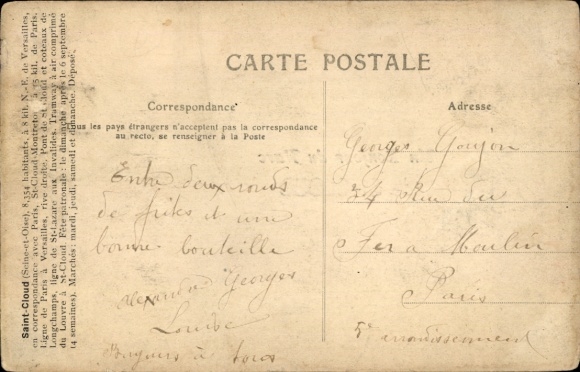 CARTE POSTALE
Correspondance
Tous les pays étrangers n'acceptent pas la correspondance
au recto, se renseigner à la Poste
Adresse
Entre deux ronds
de frites et une
bonne bouteille
Alexandre Georges
Louise
à tous
Georges Goujon
34 Rue du
Fer à Moulin
Paris
5e arrondissement
Saint-Cloud (Seine-et-Oise), 8.354 habitants, à 8 kil. N.-E. de Versailles,
en correspondance avec Paris, St-Cloud-Montretout à 15 kil. de Paris,
Ligne de Paris à Versailles, rive droite, Pont de St-Cloud et coteaux de
Longchamps, ligne de St-Lazare aux Invalides. Tramway à air comprimé
du Louvre à St-Cloud. Fête patronale : le dimanche après le 6 septembre
(4 semaines). Marchés : mardi, jeudi, samedi et dimanche. Déposé.